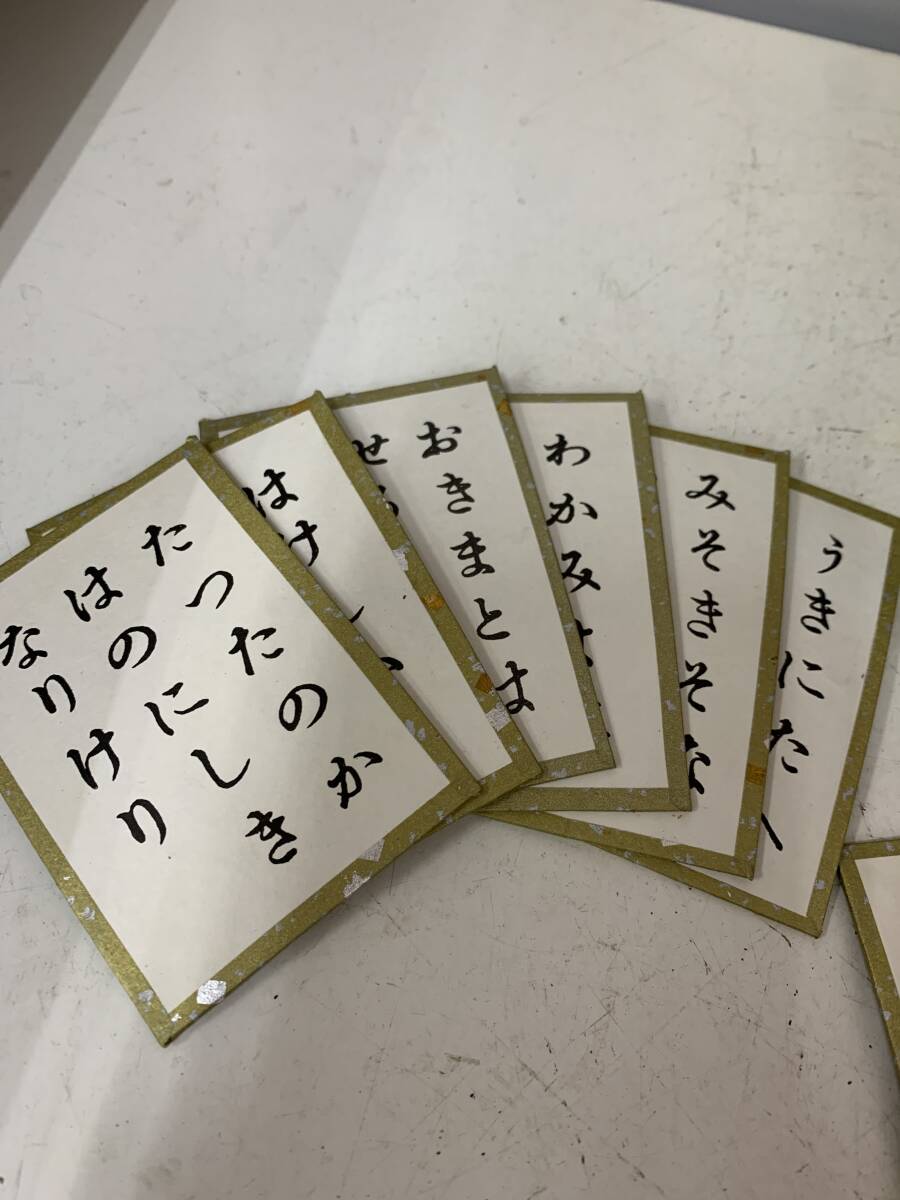 たつたのかは
のにしき
なりけり
はけし
せる
おきまとは
わかみ
みそきそな
うきにたへ